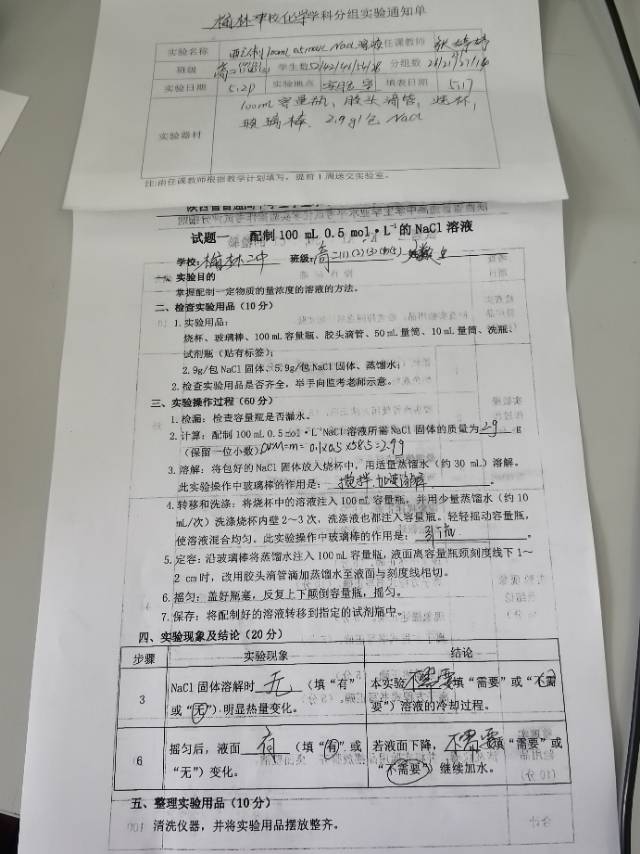 榆林中校化学学科分组实验通知单
实验名称 配制100mL 0.5mol/L NaCl溶液 任课教师
班级 高二 学生数 52/42/41/54/ 分组数
实验日期 5.21 实验地点 实验室 填表日期 5.17
实验器材 100mL容量瓶、胶头滴管、烧杯、
玻璃棒、2.9g1包NaCl
注:由任课教师根据教学计划填写,提前1周送交实验室。
试题一 配制100 mL 0.5 mol·L⁻¹的NaCl溶液
学校:榆林二中 班级:高二(1)(2)(3)(4)(5)
一、实验目的
掌握配制一定物质的量浓度的溶液的方法。
二、检查实验用品(10分)
1.实验用品:
烧杯、玻璃棒、100 mL容量瓶、胶头滴管、50 mL量筒、10 mL量筒、洗瓶、
试剂瓶(贴有标签);
2.9g/包NaCl固体、5.9g/包NaCl固体、蒸馏水;
2.检查实验用品是否齐全,举手向监考老师示意。
三、实验操作过程(60分)
1.检漏:检查容量瓶是否漏水。
2.计算:配制100 mL 0.5 mol·L⁻¹NaCl溶液所需NaCl固体的质量为2.9 g
(保留一位小数) m= 0.1x0.5x58.5=2.9g
3.溶解:将包好的NaCl固体放入烧杯中,用适量蒸馏水(约30 mL)溶解。
此实验操作中玻璃棒的作用是: 搅拌,加速溶解 。
4.转移和洗涤:将烧杯中的溶液注入100 mL容量瓶,并用少量蒸馏水(约10
mL/次)洗涤烧杯内壁2~3次,洗涤液也都注入容量瓶。轻轻摇动容量瓶,
使溶液混合均匀。此实验操作中玻璃棒的作用是: 引流 。
5.定容:沿玻璃棒将蒸馏水注入100 mL容量瓶,液面离容量瓶颈刻度线下1~
2 cm时,改用胶头滴管滴加蒸馏水至液面与刻度线相切。
6.摇匀:盖好瓶塞,反复上下颠倒容量瓶,摇匀。
7.保存:将配制好的溶液转移到指定的试剂瓶中。
四、实验现象及结论(20分)
步骤 实验现象 结论
3 NaCl固体溶解时 无 (填“有” 本实验 不需要 填“需要”或“不需
或“无”)明显热量变化。 要”)溶液的冷却过程。
6 摇匀后,液面 有 (填“有”或 若液面下降, 不需要 填“需要”或
“无”)变化。 “不需要”)继续加水。
五、整理实验用品(10分)
清洗仪器,并将实验用品摆放整齐。